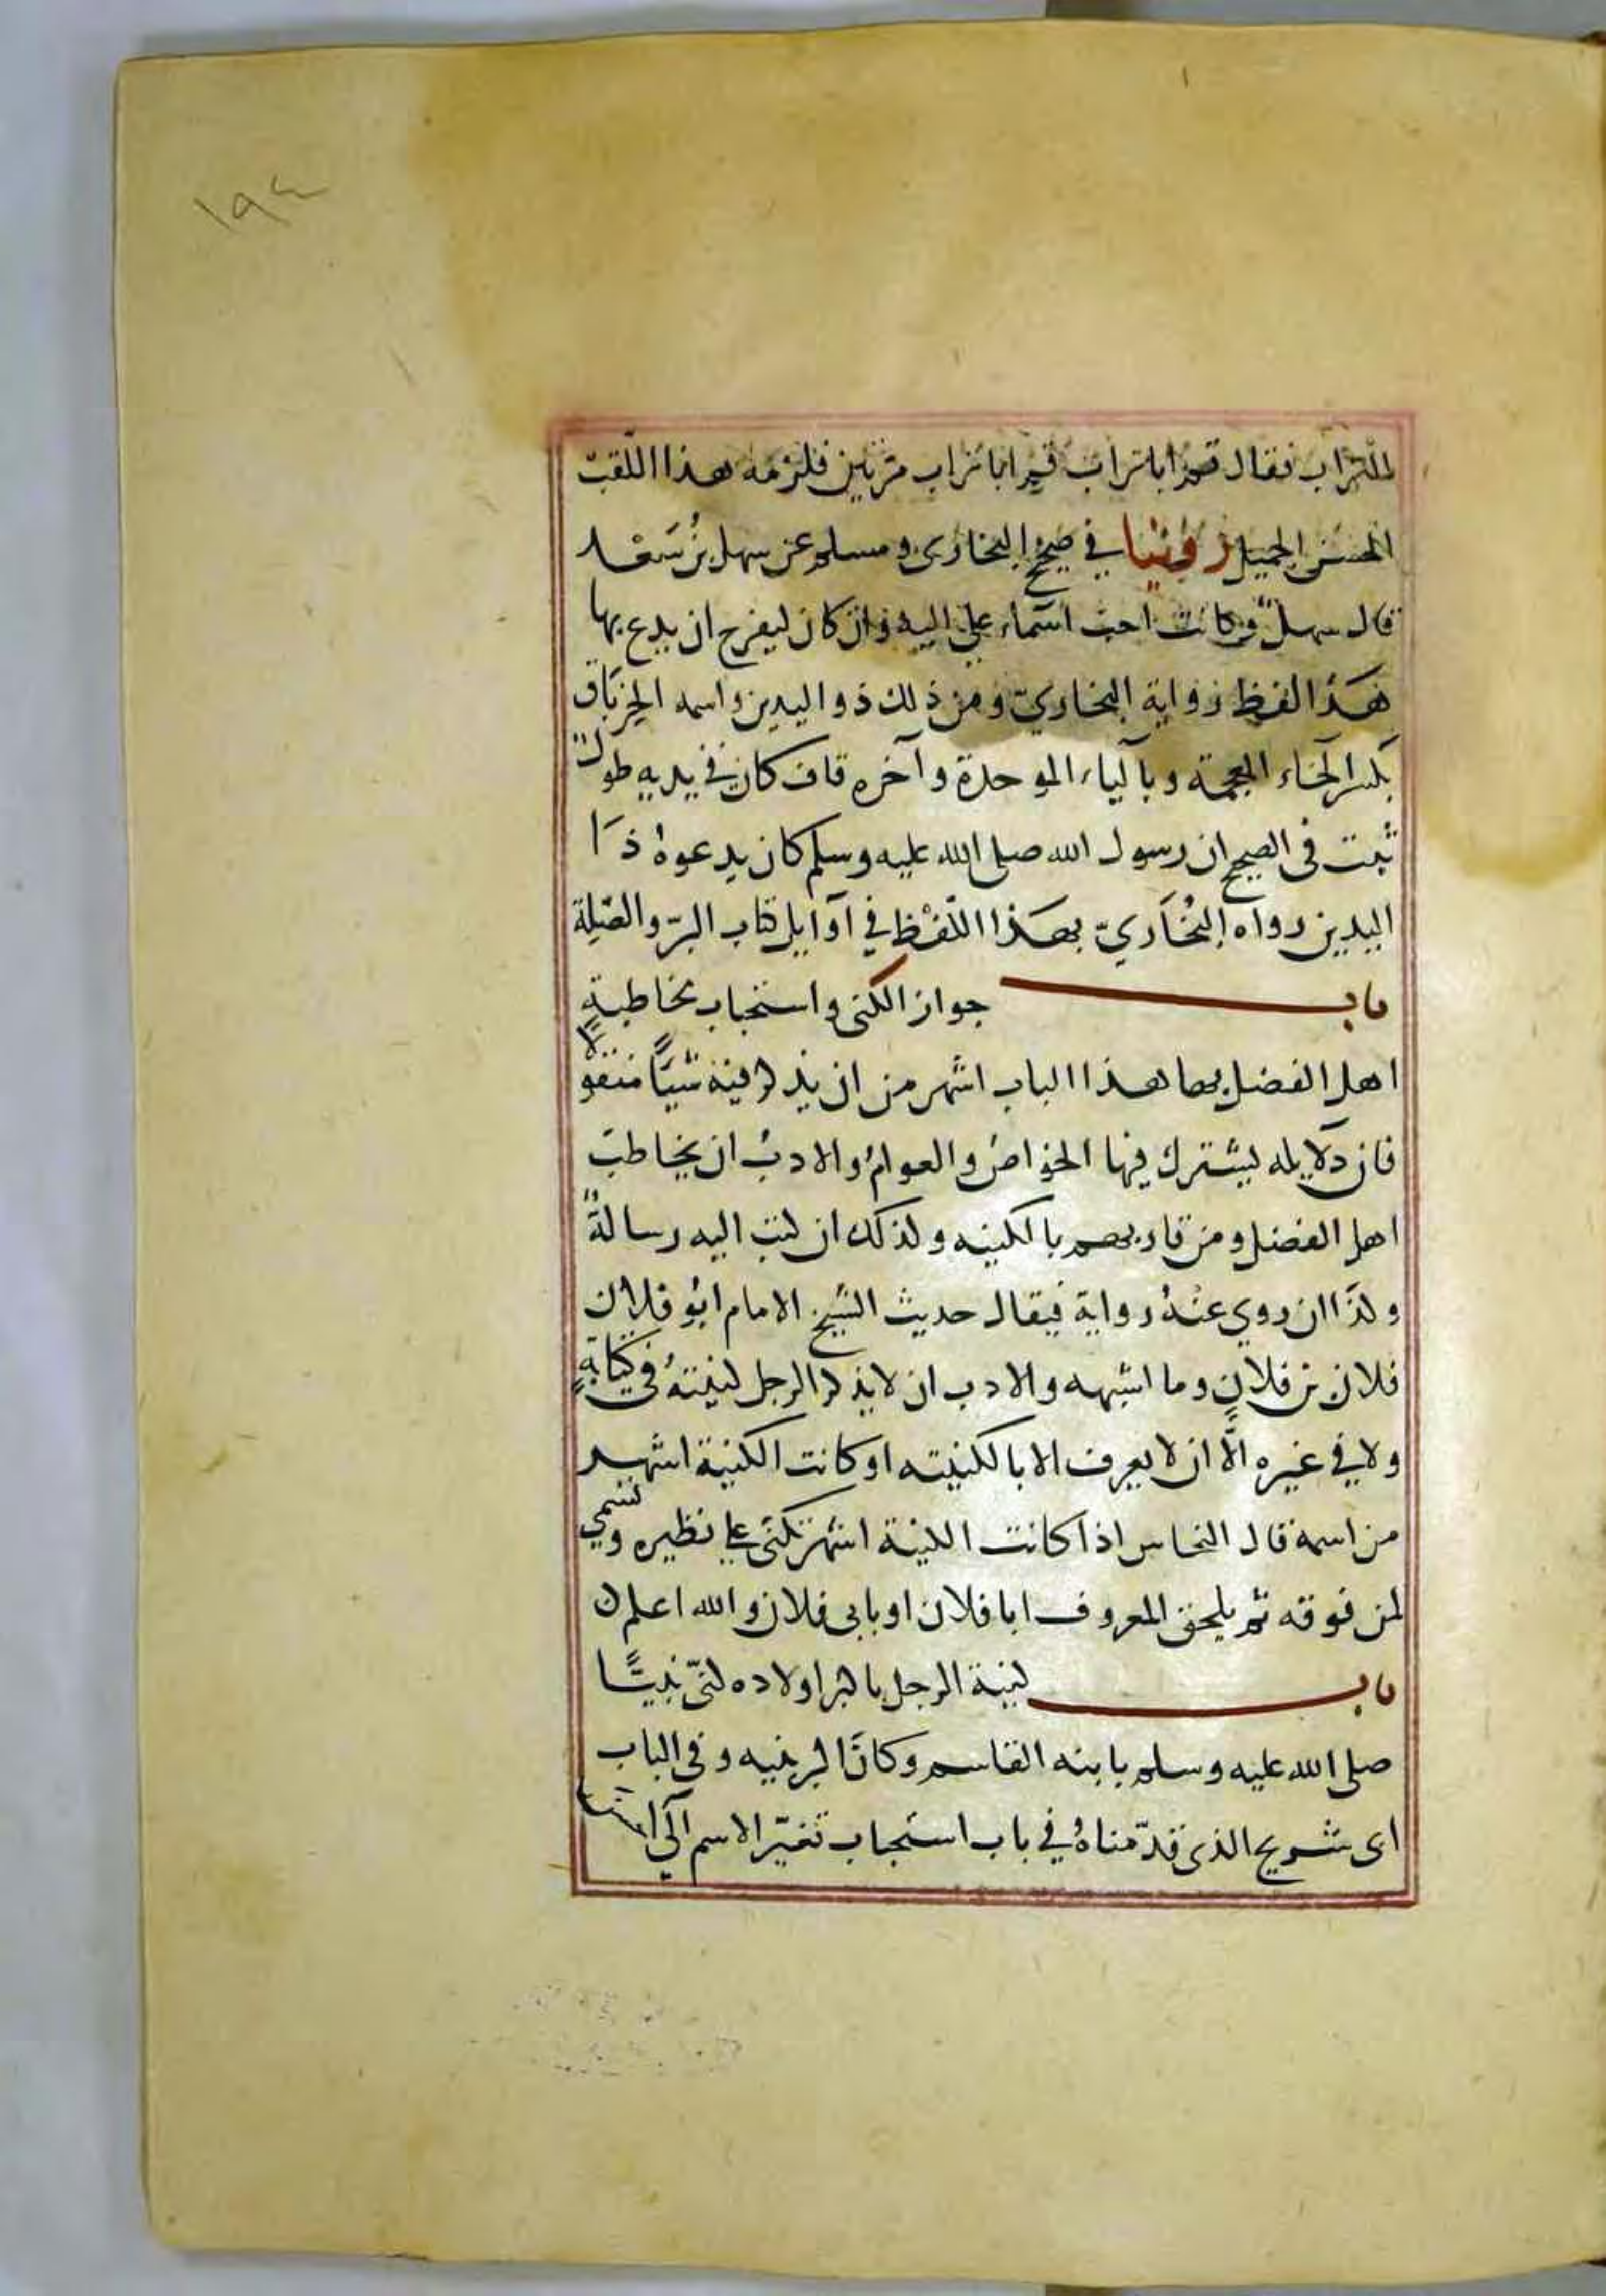 ١٩٤
التراب فقال قم ابا تراب قم ابا تراب مرتين فلزمه هذا اللقب
الحسن الجميل روينا في صحيح البخاري ومسلم عن سهل بن سعد
قال سهل وكانت احب اسماء علي اليه وان كان ليفرح ان يدع بها
هذا لفظ رواية البخاري ومن ذلك ذو اليدين واسمه الخرباق
بكسر الخاء المعجمة وبالباء الموحدة وآخره قاف كان في يديه طول
ثبت في الصحيح ان رسول الله صلى الله عليه وسلم كان يدعوه ذا
اليدين رواه البخاري بهذا اللفظ في اوايل كتاب البر والصلة
باب جواز الكنى واستحباب مخاطبة
اهل الفضل بها هذا الباب اشهر من ان يذكر فيه شيا منقولا
فان دلايله يشترك فيها الخواص والعوام والادب ان يخاطب
اهل الفضل ومن قاربهم بالكنيه وكذلك ان كتب اليه رسالة
وكذا ان روي عنه رواية فيقال حديث الشيخ الامام ابو فلان
فلان بن فلان وما اشبهه والادب ان لا يذكر الرجل كنيته في كتابه
ولا في غيره الا ان لا يعرف الا بالكنيته او كانت الكنية اشهر
من اسمه قال النحاس اذا كانت الكنية اشهر تكنى علي نظيره وتسمي
لمن فوقه ثم يلحق المعروف ابا فلان او بابي فلان والله اعلم
باب كنية الرجل باكبر اولاده كني نبينا
صلى الله عليه وسلم بابنه القاسم وكان اكبر بنيه وفي الباب
ابي شريح الذي قدمناه في باب استحباب تغير الاسم الي